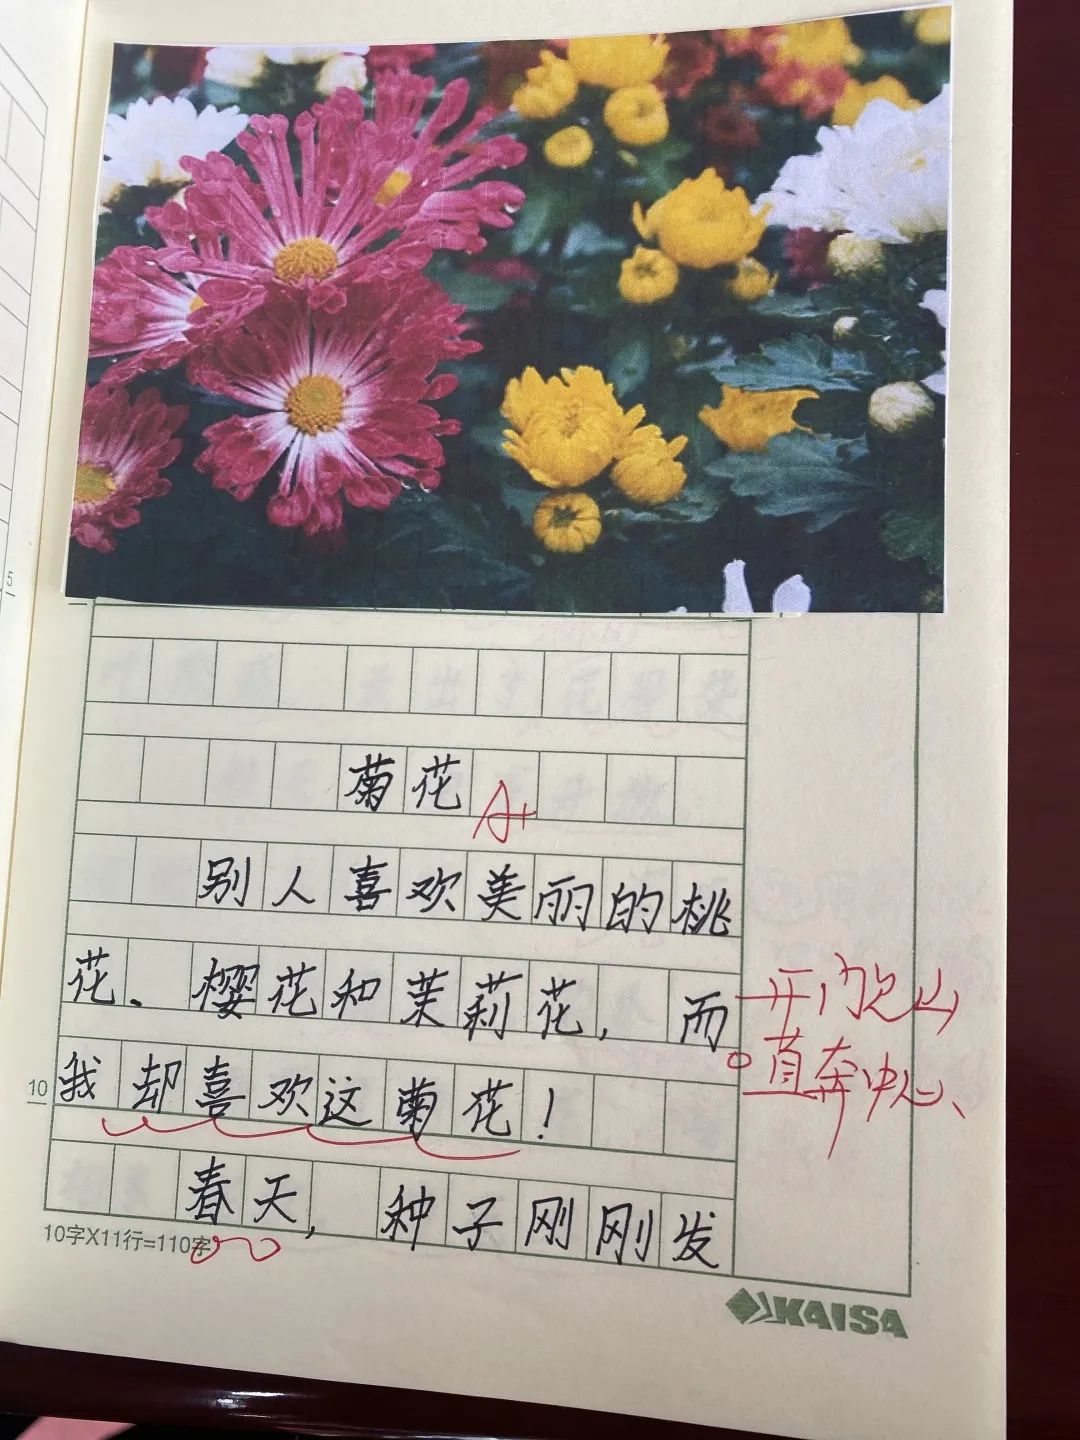 5
菊花 A+
别人喜欢美丽的桃
花、樱花和茉莉花，而
开门见山
10
我却喜欢这菊花！
直奔中心、
春天，种子刚刚发
10字X11行=110字
KAISA